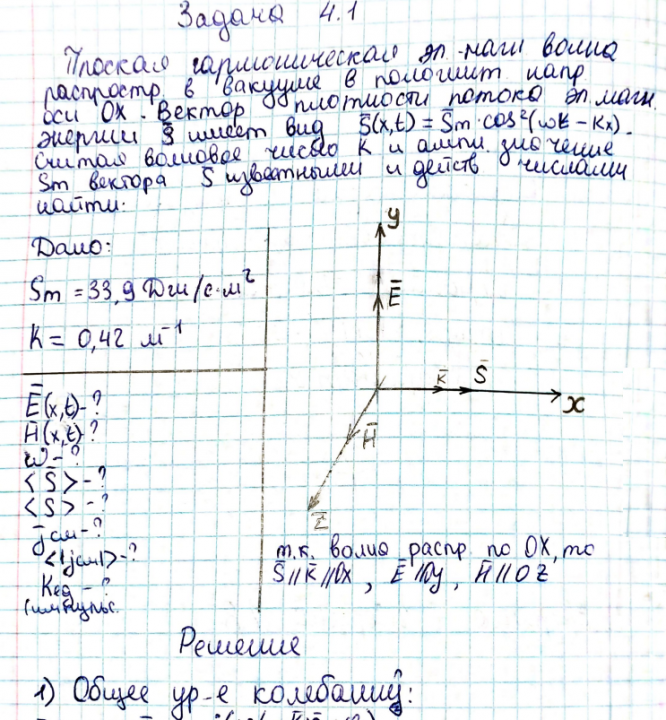 Задача 4.1
Плоская гармоническая эл-магн волна
распростр. в вакууме в положит напр
оси OX. Вектор плотности потока эл. магн.
энергии S̄ имеет вид S̄(x,t) = S̄m·cos²(ωt - Kx).
Считая волновое число K и ампл. значение
Sm вектора S̄ известными и действ числами
найти:
Дано:
Sm = 33,9 Дж/с·м²
K = 0,42 м⁻¹
Ē(x,t)-?
H̄(x,t)-?
ω-?
<S̄>-?
<S>-?
j̄см-?
<|jсм|>-?
Kед-?
(импульс.
y
Ē
K̄
S̄
x
H̄
Z
т.к. волна распр. по OX, то
S̄//K̄//Ox, Ē//Oy, H̄//OZ
Решение
1) Общее ур-е колебаний: